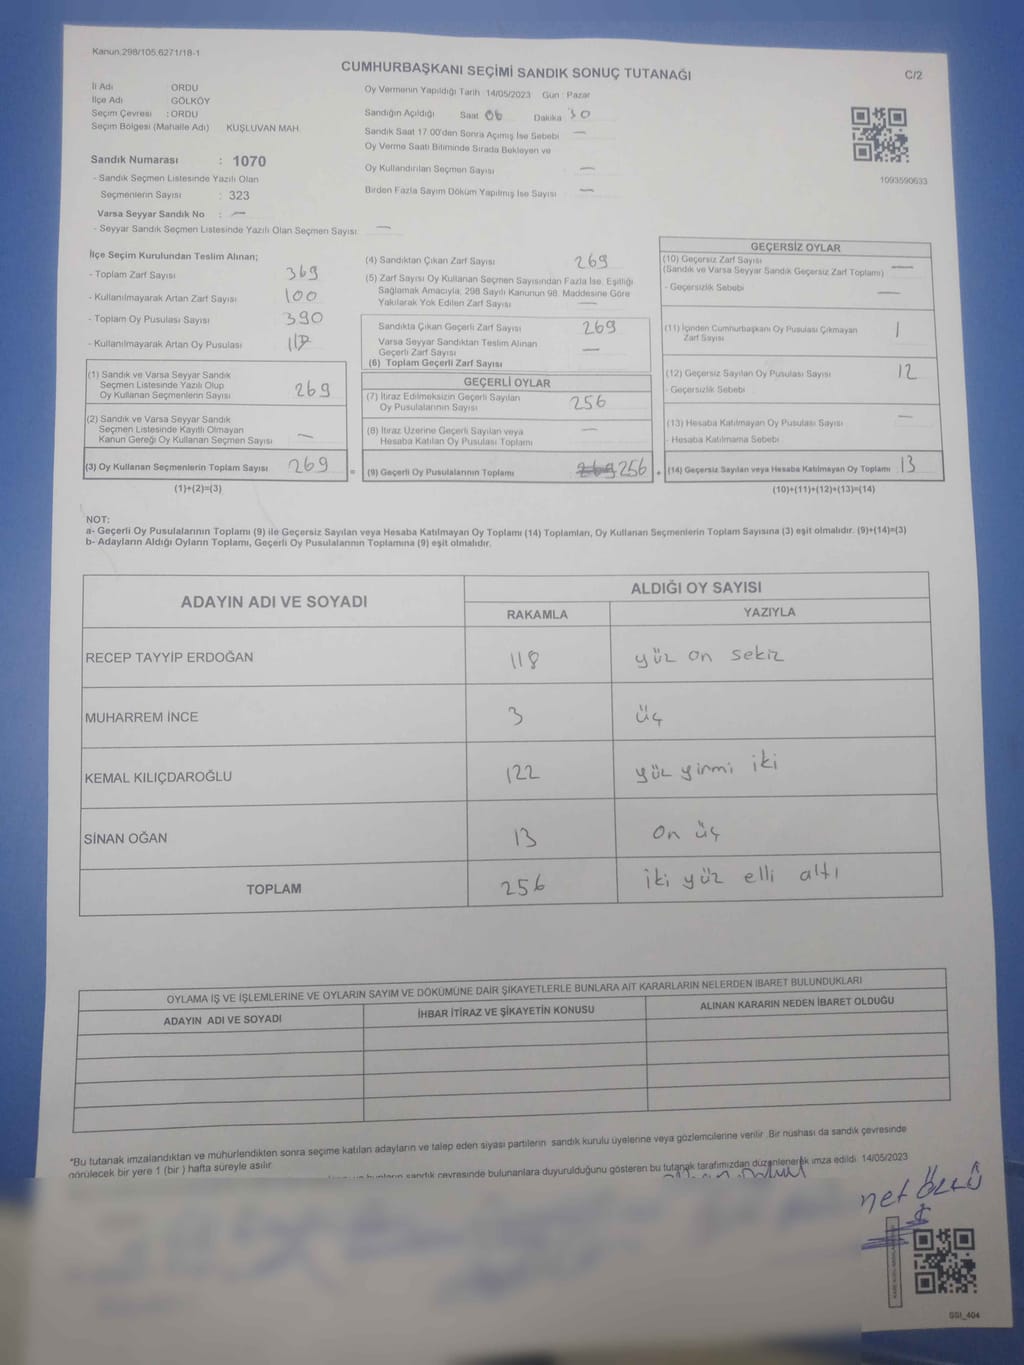 Kanun.298/105,6271/18-1
CUMHURBAŞKANI SEÇİMİ SANDIK SONUÇ TUTANAĞI
C/2
İl Adı ORDU
İlçe Adı GÖLKÖY
Seçim Çevresi : ORDU
Seçim Bölgesi (Mahalle Adı) KUŞLUVAN MAH.
Sandık Numarası : 1070
- Sandık Seçmen Listesinde Yazılı Olan
Seçmenlerin Sayısı : 323
Varsa Seyyar Sandık No : —
- Seyyar Sandık Seçmen Listesinde Yazılı Olan Seçmen Sayısı —
Oy Vermenin Yapıldığı Tarih : 14/05/2023 Gün : Pazar
Sandığın Açıldığı Saat 06 Dakika 30
Sandık Saat 17.00'den Sonra Açımış İse Sebebi —
Oy Verme Saati Bitiminde Sırada Bekleyen ve
Oy Kullandırılan Seçmen Sayısı —
Birden Fazla Sayım Döküm Yapılmış İse Sayısı —
1093590633
İlçe Seçim Kurulundan Teslim Alınan;
- Toplam Zarf Sayısı 369
- Kullanılmayarak Artan Zarf Sayısı 100
- Toplam Oy Pusulası Sayısı 390
- Kullanılmayarak Artan Oy Pusulası
(1) Sandık ve Varsa Seyyar Sandık
Seçmen Listesinde Yazılı Olup
Oy Kullanan Seçmenlerin Sayısı 269
(2) Sandık ve Varsa Seyyar Sandık
Seçmen Listesinde Kayıtlı Olmayan
Kanun Gereği Oy Kullanan Seçmen Sayısı —
(3) Oy Kullanan Seçmenlerin Toplam Sayısı 269
(1)+(2)=(3)
=
(4) Sandıktan Çıkan Zarf Sayısı 269
(5) Zarf Sayısı Oy Kullanan Seçmen Sayısından Fazla İse, Eşitliği
Sağlamak Amacıyla, 298 Sayılı Kanunun 98. Maddesine Göre
Yakılarak Yok Edilen Zarf Sayısı —
Sandıkta Çıkan Geçerli Zarf Sayısı 269
Varsa Seyyar Sandıktan Teslim Alınan
Geçerli Zarf Sayısı —
(6) Toplam Geçerli Zarf Sayısı
GEÇERLİ OYLAR
(7) İtiraz Edilmeksizin Geçerli Sayılan
Oy Pusulalarının Sayısı 256
(8) İtiraz Üzerine Geçerli Sayılan veya
Hesaba Katılan Oy Pusulası Toplamı —
(9) Geçerli Oy Pusulalarının Toplamı 269 256
+
GEÇERSİZ OYLAR
(10) Geçersiz Zarf Sayısı
(Sandık ve Varsa Seyyar Sandık Geçersiz Zarf Toplamı) —
- Geçersizlik Sebebi —
(11) İçinden Cumhurbaşkanı Oy Pusulası Çıkmayan
Zarf Sayısı 1
(12) Geçersiz Sayılan Oy Pusulası Sayısı 12
- Geçersizlik Sebebi
(13) Hesaba Katılmayan Oy Pusulası Sayısı —
- Hesaba Katılmama Sebebi
(14) Geçersiz Sayılan veya Hesaba Katılmayan Oy Toplamı 13
(10)+(11)+(12)+(13)=(14)
NOT:
a- Geçerli Oy Pusulalarının Toplamı (9) ile Geçersiz Sayılan veya Hesaba Katılmayan Oy Toplamı (14) Toplamları, Oy Kullanan Seçmenlerin Toplam Sayısına (3) eşit olmalıdır. (9)+(14)=(3)
b- Adayların Aldığı Oyların Toplamı, Geçerli Oy Pusulalarının Toplamına (9) eşit olmalıdır.
ADAYIN ADI VE SOYADI
ALDIĞI OY SAYISI
RAKAMLA YAZIYLA
RECEP TAYYİP ERDOĞAN 118 yüz on sekiz
MUHARREM İNCE 3 üç
KEMAL KILIÇDAROĞLU 122 yüz yirmi iki
SİNAN OĞAN 13 on üç
TOPLAM 256 iki yüz elli altı
OYLAMA İŞ VE İŞLEMLERİNE VE OYLARIN SAYIM VE DÖKÜMÜNE DAİR ŞİKAYETLERLE BUNLARA AİT KARARLARIN NELERDEN İBARET BULUNDUKLARI
ADAYIN ADI VE SOYADI
İHBAR İTİRAZ VE ŞİKAYETİN KONUSU
ALINAN KARARIN NEDEN İBARET OLDUĞU
*Bu tutanak imzalandıktan ve mühürlendikten sonra seçime katılan adayların ve talep eden siyasi partilerin sandık kurulu üyelerine veya gözlemcilerine verilir. Bir nüshası da sandık çevresinde
görülecek bir yere 1 (bir ) hafta süreyle asılır.
sandık çevresinde bulunanlara duyurulduğunu gösteren bu tutanak tarafımızdan düzenlenerek imza edildi. 14/05/2023
SSI_404